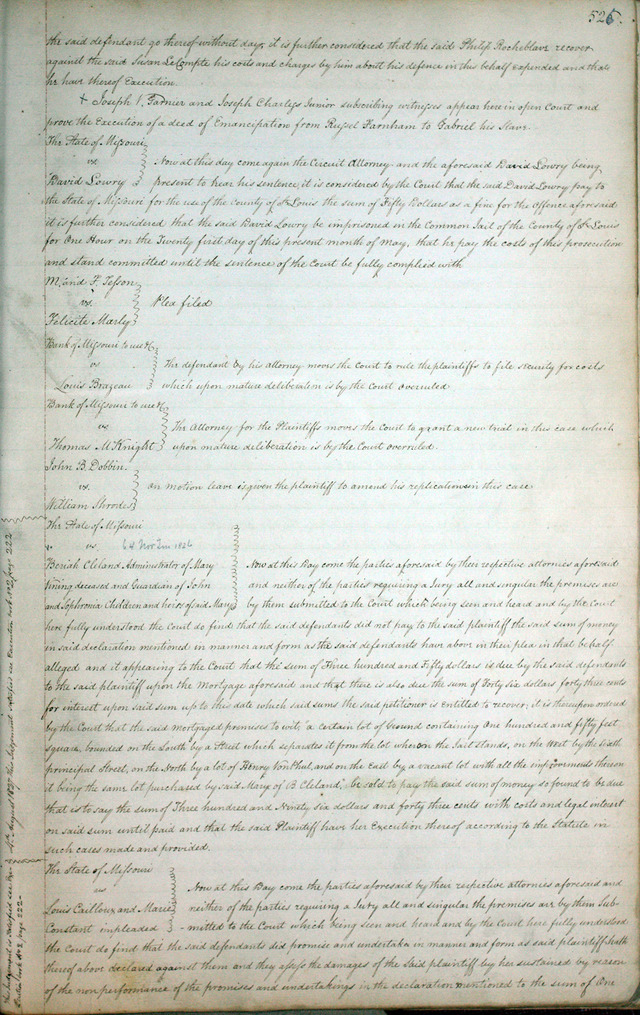 526.
the said defendant go thereof without day, it is further considered that the said Philip Rocheblave recover
against the said Susan LeCompte his costs and charges by him about his defence in this behalf expended and that
he have thereof Execution.
+ Joseph V. Garnier and Joseph Charless Junior subscribing witnesses appear here in open Court and
prove the Execution of a deed of Emancipation from Russel Farnham to Gabriel his Slave.
The State of Missouri
vs
David Lowry
Now at this day come again the Circuit Attorney and the aforesaid David Lowry being
present to hear his sentence, it is considered by the Court that the said David Lowry pay to
the State of Missouri for the use of the county of St Louis the sum of Fifty Dollars as a fine for the Offence aforesaid
it is further considered that the said David Lowry be imprisoned in the Common Jail of the County of St Louis
for One Hour on the Twenty first day of this present month of May, that he pay the costs of this prosecution
and stand committed until the sentence of the Court be fully complied with
M, and F. Tesson
vs.
Felicite Marly
Plea filed
Bank of Missouri to use &c
vs
Louis Brazeau
The defendant by his attorney moves the Court to rule the plaintiffs to file security for costs
which upon mature deliberation is by the Court overruled
Bank of Missouri to use &c
vs
Thomas McKnight
The Attorney for the Plaintiffs moves the Court to grant a new trial in this case which
upon mature deliberation is by the Court overruled.
John B. Dobbin.
vs.
William Shrodes
On motion leave is given the plaintiff to amend his replications in this case
The State of Missouri
vs 64 Nov Tm 1826
Beriah Cleland Administrator of Mary
deceased and Guardian of John
and Sophronia Children and heirs of said Mary
Now at this Day come the parties aforesaid by their respective attornies aforesaid
and neither of the parties requiring a Jury all and singular the premises are
by them submitted to the Court which being seen and heard and by the Court
here fully understood the Court do find that the said defendants did not pay to the said plaintiff the said sum of money
in said declaration mentioned in manner and form as the said defendants have above in their plea in that behalf
alleged and it appearing to the Court that the sum of Three hundred and Fifty dollars is due by the said defendants
to the said plaintiff upon the Mortgage aforesaid and that there is also due the sum of Forty six dollars forty three cents
for interest upon said sum up to this date which said sums the said petitioner is entitled to recover, it is thereupon ordered
by the Court that the said mortgaged premises to wit, a certain lot of Ground containing One hundred and fifty feet
square, bounded on the South by a Street which separates it from the lot whereon the Jail stands, on the West by the Sixth
principal Street, on the North by a lot of Henry Von Phul, and on the East by a vacant lot with all the improvements thereon
it being the same lot purchased by said Mary of B Cleland, be sold to pay the said sum of money so found to be due
that is to say the sum of Three hundred and Ninety six dollars and forty three cents with costs and legal interest
on said sum until paid and that the said Plaintiff have her Execution thereof according to the Statute in
such cases made and provided.
The State of Missouri
vs
Louis Cailloux and Marie
Constant impleaded
Now at this Day come the parties aforesaid by their respective attornies aforesaid and
neither of the parties requiring a Jury all and singular the premises are by them Sub-
mitted to the Court which being seen and heard and by the Court here fully understood
the Court do find that the said defendants did promise and undertake in manner and form as said plaintiff hath
thereof above declared against them and they assess the damages of the Said plaintiff by her sustained by reason
of the non performance of the promises and undertakings in the declaration mentioned to the sum of One